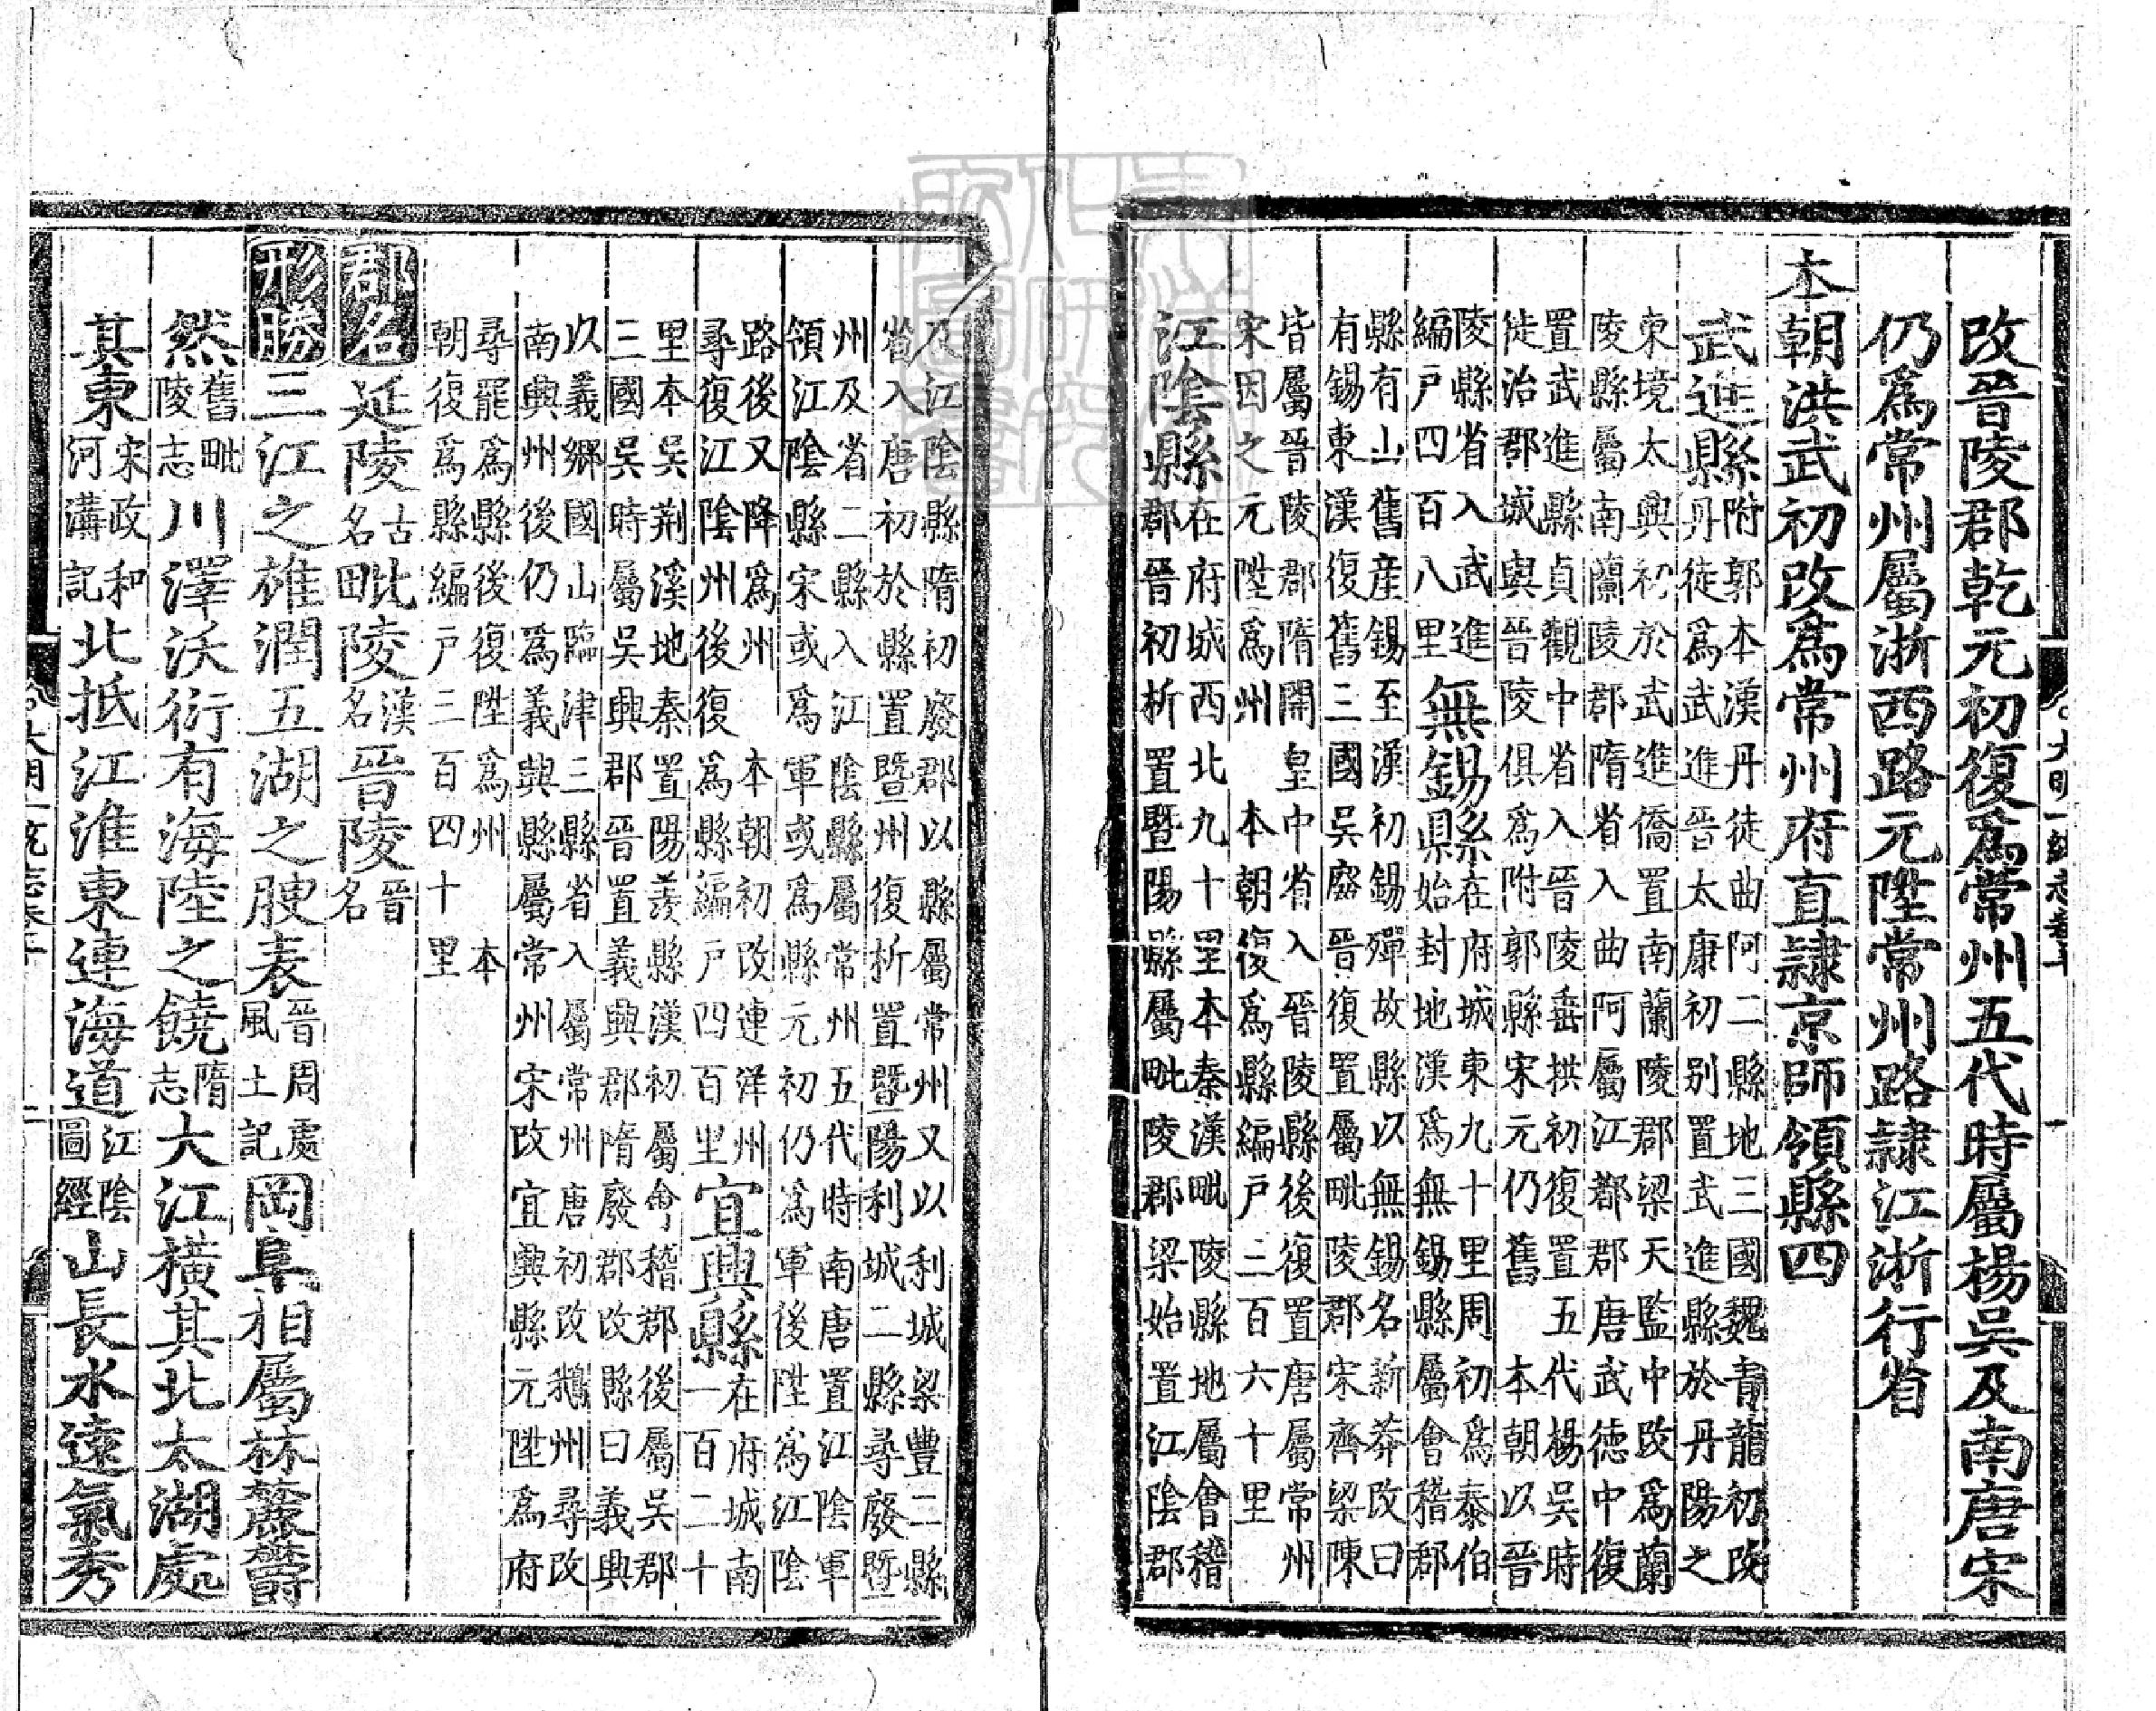 改晉陵郡乾元初復爲常州五代時屬楊吳及南唐宋
仍爲常州屬浙西路元陞常州路隷江浙行省
本朝洪武初改爲常州府直隷京師領縣四
武進縣附郭本漢丹徒曲阿二縣地三國魏青龍初改
丹徒爲武進晉太康初别置武進縣於丹陽之
東境太興初於武進僑置南蘭陵郡梁天監中改爲蘭
陵縣屬南蘭陵郡隋省入曲阿屬江都郡唐武德中復
置武進縣貞觀中省入晉陵垂拱初復置五代楊吳時
徙治郡城與晉陵俱爲附郭縣宋元仍舊 本朝以晉
陵縣省入武進
編戸四百八里
無錫縣在府城東九十里周初爲泰伯
始封地漢爲無錫縣屬會稽郡
縣有山舊産錫至漢初錫殫故縣以無錫名新莽改曰
有錫東漢復舊三國吳廢晉復置屬毗陵郡宋齊梁陳
皆屬晉陵郡隋開皇中省入晉陵縣後復置唐屬常州
宋因之元陞爲州 本朝復爲縣編戸二百六十里
江陰縣在府城西北九十里本秦漢毗陵縣地屬會稽
郡晉初析置暨陽縣屬毗陵郡梁始置江陰郡
及江陰縣隋初廢郡以縣屬常州又以利城梁豐二縣
省入唐初於縣置暨州復析置暨陽利城二縣尋廢暨
州及省二縣入江陰縣屬常州五代時南唐置江陰軍
領江陰縣宋或爲軍或爲縣元初仍爲軍後陞爲江陰
路後又降爲州 本朝初改連洋州
尋復江陰州後復爲縣編戸四百里
宜興縣在府城南
一百二十
里本吳荆溪地秦置陽羨縣漢初屬會稽郡後屬吳郡
三國吳時屬吳興郡晉置義興郡隋廢郡改縣曰義興
以義鄉國山臨津三縣省入屬常州唐初改鵝州尋改
南興州後仍爲義興縣屬常州宋改宜興縣元陞爲府
尋罷爲縣後復陞爲州 本
朝復爲縣編戸三百四十里
郡名延陵古名毗陵漢名晉陵晉名
形勝三江之雄潤五湖之腴表晉周處風土記岡阜相屬林麓鬱
然舊毗陵志川澤沃衍有海陸之饒隋志大江橫其北太湖處
其東宋政和河溝記北抵江淮東連海道江陰圖經山長水遠氣秀